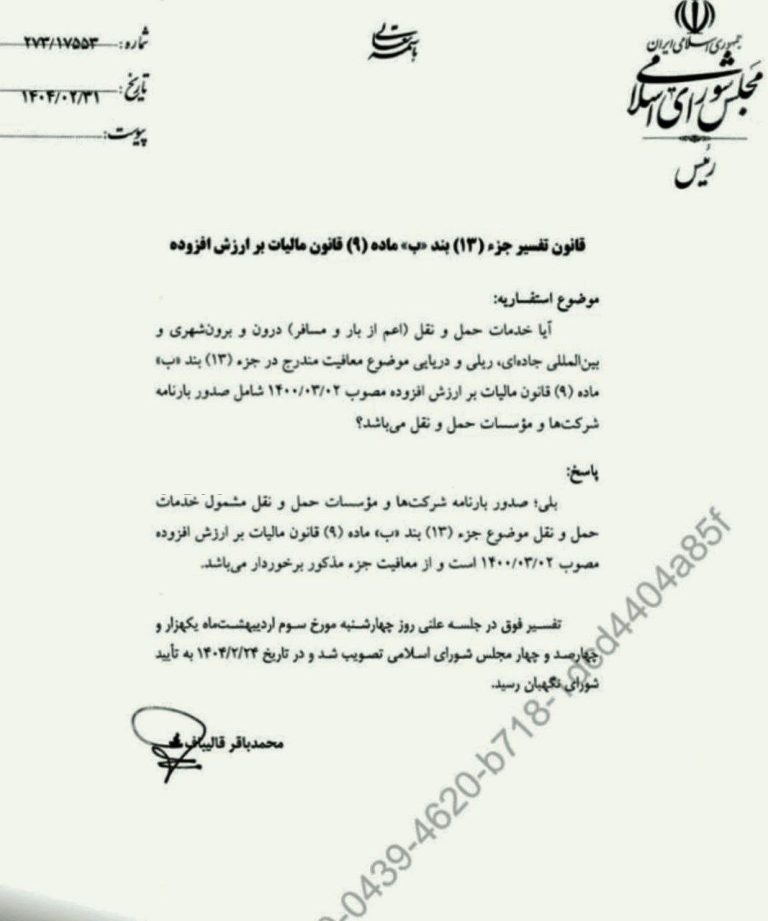 جمهوری اسلامی ایران
مجلس شورای اسلامی
رئیس
باسمه تعالی
شماره: ۲۷۳/۱۷۵۵۳
تاریخ: ۱۴۰۴/۰۲/۳۱
پیوست:
قانون تفسیر جزء (۱۳) بند «ب» ماده (۹) قانون مالیات بر ارزش افزوده
موضوع استفساریه:
آیا خدمات حمل و نقل (اعم از بار و مسافر) درون و برون‌شهری و
بین‌المللی جاده‌ای، ریلی و دریایی موضوع معافیت مندرج در جزء (۱۳) بند «ب»
ماده (۹) قانون مالیات بر ارزش افزوده مصوب ۱۴۰۰/۰۳/۰۲ شامل صدور بارنامه
شرکت‌ها و مؤسسات حمل و نقل می‌باشد؟
پاسخ:
بلی؛ صدور بارنامه شرکت‌ها و مؤسسات حمل و نقل مشمول خدمات
حمل و نقل موضوع جزء (۱۳) بند «ب» ماده (۹) قانون مالیات بر ارزش افزوده
مصوب ۱۴۰۰/۰۳/۰۲ است و از معافیت جزء مذکور برخوردار می‌باشد.
تفسیر فوق در جلسه علنی روز چهارشنبه مورخ سوم اردیبهشت‌ماه یکهزار و
چهارصد و چهار مجلس شورای اسلامی تصویب شد و در تاریخ ۱۴۰۴/۲/۲۴ به تأیید
شورای نگهبان رسید.
محمدباقر قالیباف
-0439-4620-b718-1dcd4404a85f